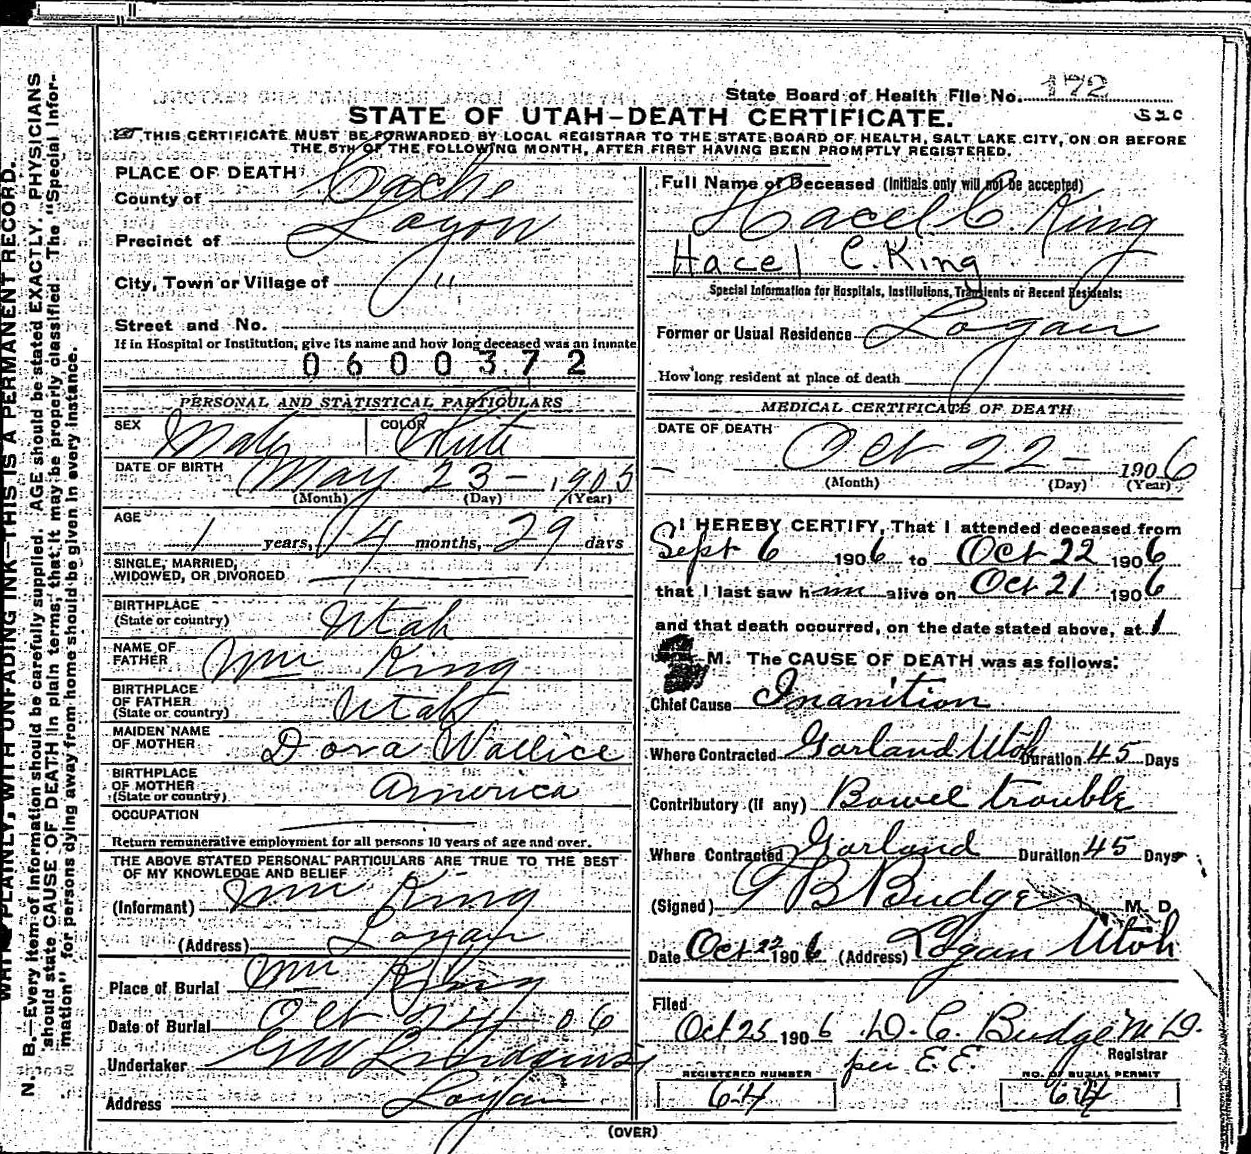 State Board of Health File No. 172
STATE OF UTAH–DEATH CERTIFICATE.
THIS CERTIFICATE MUST BE FORWARDED BY LOCAL REGISTRAR TO THE STATE BOARD OF HEALTH, SALT LAKE CITY, ON OR BEFORE
THE 5TH OF THE FOLLOWING MONTH, AFTER FIRST HAVING BEEN PROMPTLY REGISTERED.
PLACE OF DEATH
County of Cache
Precinct of Logan
City, Town or Village of "
Street and No.
If in Hospital or Institution, give its name and how long deceased was an inmate
0600372
PERSONAL AND STATISTICAL PARTICULARS
SEX Male COLOR White
DATE OF BIRTH May 23 – 1905
(Month) (Day) (Year)
AGE 1 years, 4 months, 29 days
SINGLE, MARRIED,
WIDOWED, OR DIVORCED
BIRTHPLACE
(State or country) Utah
NAME OF
FATHER Wm King
BIRTHPLACE
OF FATHER
(State or country) Utah
MAIDEN NAME
OF MOTHER Dora Wallice
BIRTHPLACE
OF MOTHER
(State or country) America
OCCUPATION
Return remunerative employment for all persons 10 years of age and over.
THE ABOVE STATED PERSONAL PARTICULARS ARE TRUE TO THE BEST
OF MY KNOWLEDGE AND BELIEF
(Informant) Wm King
(Address) Logan
Place of Burial Wm King
Date of Burial Oct 24 06
Undertaker
Address Logan
Full Name of Deceased (Initials only will not be accepted)
Hacel C. King
Hacel C. King
Special Information for Hospitals, Institutions, Transients or Recent Residents:
Former or Usual Residence Logan
How long resident at place of death
MEDICAL CERTIFICATE OF DEATH
DATE OF DEATH Oct 22 – 1906
(Month) (Day) (Year)
I HEREBY CERTIFY, That I attended deceased from
Sept 6 1906 to Oct 22 1906
that I last saw him alive on Oct 21 1906
and that death occurred, on the date stated above, at 1
M. The CAUSE OF DEATH was as follows:
Chief Cause Inanition
Where Contracted Garland Utah Duration 45 Days
Contributory (if any) Bowel trouble
Where Contracted Garland Duration 45 Days
(Signed) Budge M. D.
Date Oct 22 1906 (Address) Logan Utah
Filed
Oct 25 1906 D. C. Budge M.D.
Registrar
per E. E.
REGISTERED NUMBER 64
NO. OF BURIAL PERMIT 64
(OVER)
WRITE PLAINLY, WITH UNFADING INK—THIS IS A PERMANENT RECORD.
N. B.—Every item of information should be carefully supplied. AGE should be stated EXACTLY. PHYSICIANS
should state CAUSE OF DEATH in plain terms, that it may be properly classified. The "Special Infor-
mation" for persons dying away from home should be given in every instance.